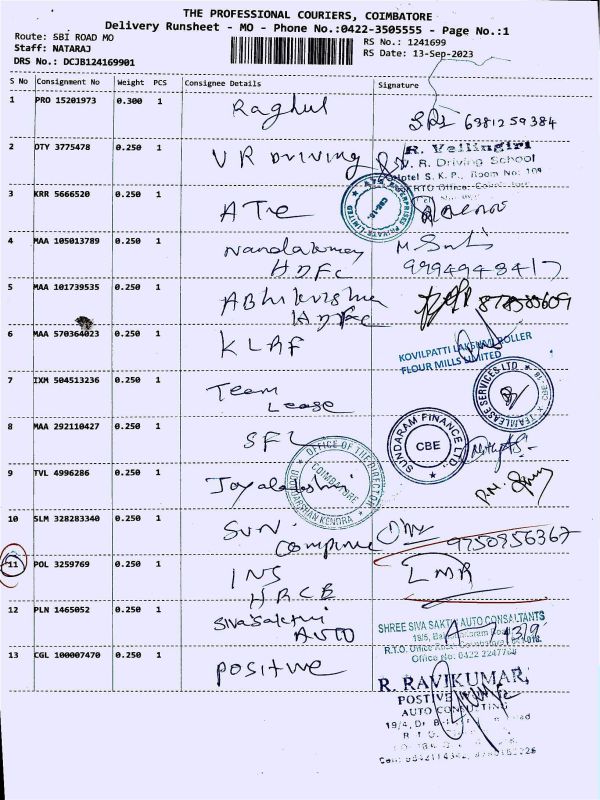 THE PROFESSIONAL COURIERS, COIMBATORE
Delivery Runsheet - MO - Phone No.:0422-3505555 - Page No.:1
Route: SBI ROAD MO
Staff: NATARAJ
DRS No.: DCJB124169901
RS No.: 1241699
RS Date: 13-Sep-2023
S No Consignment No Weight PCS Consignee Details Signature
1 PRO 15201973 0.300 1 Raghul 6381259384
2 DTY 3775478 0.250 1 VR Driving
R. Vellingiri
V. R. Driving School
Hotel S. K. P., Room No: 109
RTO Office
3 KRR 5666520 0.250 1 ATe
ATE ENTERPRISES PRIVATE LIMITED
4 MAA 105013789 0.250 1 Nandakumar
HDFC
9994948417
5 MAA 101739535 0.250 1 Abhikrishna
HDFC
6 MAA 570364023 0.250 1 KLRF
KOVILPATTI LAKSHMI ROLLER
FLOUR MILLS LIMITED
7 IXM 504513236 0.250 1 Team
Lease
TEAMLEASE SERVICES LTD
8 MAA 292110427 0.250 1 SFL
SUNDARAM FINANCE LTD.,
CBE
9 TVL 4996286 0.250 1 Jayalakshmi
OFFICE OF THE DIRECTOR
COIMBATORE
DOORDARSHAN KENDRA
10 SLM 328283340 0.250 1 Sun
9750956367
11 POL 3259769 0.250 1 INS
HRCE
LMR
12 PLN 1465052 0.250 1 Sivasakthi
Auto
SHREE SIVA SAKTHI AUTO CONSULTANTS
R.T.O. Office
Office No: 0422 2247768
13 CGL 100007470 0.250 1 Positive
R. RAVIKUMAR,
POSTIVE
AUTO CONSULTING